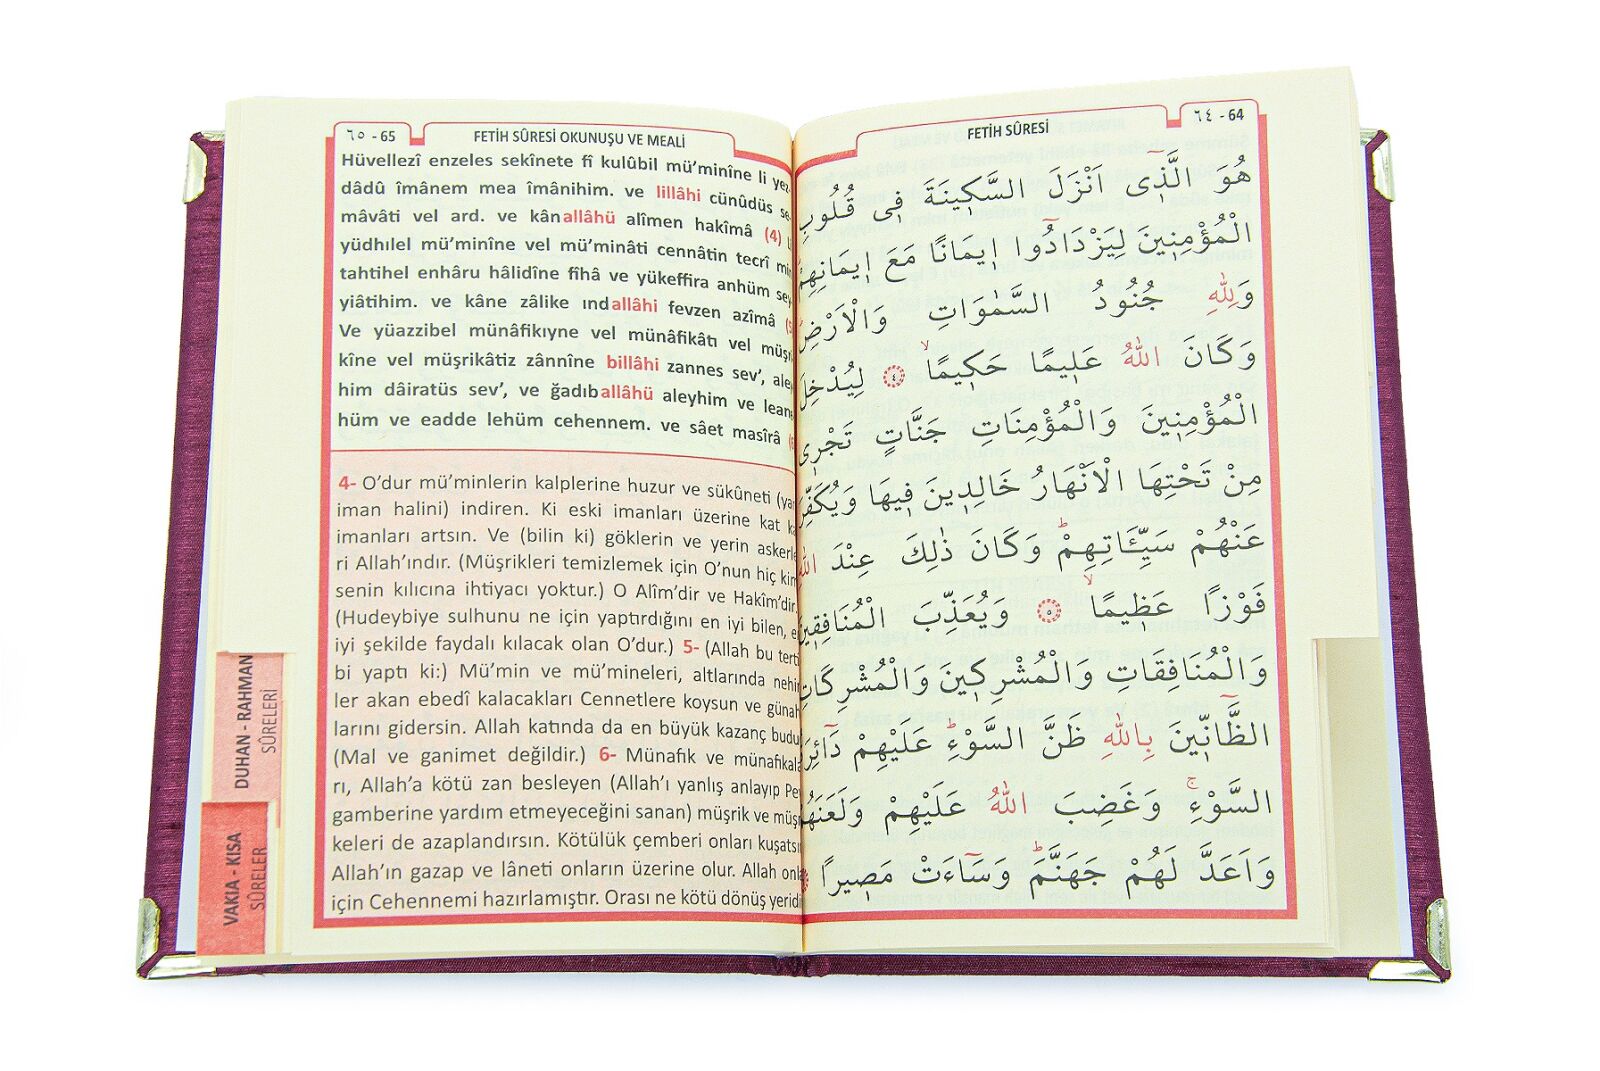 ٦٥ - 65
FETİH SÛRESİ OKUNUŞU VE MEALİ
Hüvellezî enzeles sekînete fî kulûbil mü’minîne li yez-
dâdû îmânem mea îmânihim. ve lillâhi cünûdüs se-
mâvâti vel ard. ve kânallâhü alîmen hakîmâ (4) li
yüdhılel mü’minîne vel mü’minâti cennâtin tecrî min
tahtihel enhâru hâlidîne fîhâ ve yükeffira anhüm sey-
yiâtihim. ve kâne zâlike ındallâhi fevzen azîmâ (5)
Ve yüazzibel münâfikıyne vel münâfikâti vel müşri-
kîne vel müşrikâtiz zânnîne billâhi zannes sev’, aley-
him dâiratüs sev’, ve ğadıballâhü aleyhim ve leane-
hüm ve eadde lehüm cehennem. ve sâet masîrâ (6)
4- O’dur mü’minlerin kalplerine huzur ve sükûneti (yani
iman halini) indiren. Ki eski imanları üzerine kat kat
imanları artsın. Ve (bilin ki) göklerin ve yerin askerle-
ri Allah’ındır. (Müşrikleri temizlemek için O’nun hiç kim-
senin kılıcına ihtiyacı yoktur.) O Alîm’dir ve Hakîm’dir.
(Hudeybiye sulhunu ne için yaptırdığını en iyi bilen, en
iyi şekilde faydalı kılacak olan O’dur.) 5- (Allah bu terti-
bi yaptı ki:) Mü’min ve mü’mineleri, altlarında nehir-
ler akan ebedî kalacakları Cennetlere koysun ve günah-
larını gidersin. Allah katında da en büyük kazanç budur.
(Mal ve ganimet değildir.) 6- Münafık ve münafıkala-
rı, Allah’a kötü zan besleyen (Allah’ı yanlış anlayıp Pey-
gamberine yardım etmeyeceğini sanan) müşrik ve müşri-
keleri de azaplandırsın. Kötülük çemberi onları kuşatsın.
Allah’ın gazap ve lâneti onların üzerine olur. Allah onlar
için Cehennemi hazırlamıştır. Orası ne kötü dönüş yeridir.
DUHAN - RAHMAN
SÛRELERİ
VAKIA - KISA
SÛRELER
FETİH SÛRESİ
٦٤ - 64
هُوَ الَّذ۪ٓي اَنْزَلَ السَّك۪ينَةَ ف۪ي قُلُوبِ
الْمُؤْمِن۪ينَ لِيَزْدَادُٓوا ا۪يمَانًا مَعَ ا۪يمَانِهِمْ
وَلِلّٰهِ جُنُودُ السَّمٰوَاتِ وَالْاَرْضِ
وَكَانَ اللّٰهُ عَل۪يمًا حَك۪يمًاۙ ٤ لِيُدْخِلَ
الْمُؤْمِن۪ينَ وَالْمُؤْمِنَاتِ جَنَّاتٍ تَجْر۪ي
مِنْ تَحْتِهَا الْاَنْهَارُ خَالِد۪ينَ ف۪يهَا وَيُكَفِّرَ
عَنْهُمْ سَيِّـَٔاتِهِمْۜ وَكَانَ ذٰلِكَ عِنْدَ اللّٰهِ
فَوْزًا عَظ۪يمًاۙ ٥ وَيُعَذِّبَ الْمُنَافِق۪ينَ
وَالْمُنَافِقَاتِ وَالْمُشْرِك۪ينَ وَالْمُشْرِكَاتِ
الظَّٓانّ۪ينَ بِاللّٰهِ ظَنَّ السَّوْءِۜ عَلَيْهِمْ دَٓائِرَةُ
السَّوْءِۚ وَغَضِبَ اللّٰهُ عَلَيْهِمْ وَلَعَنَهُمْ
وَاَعَدَّ لَهُمْ جَهَنَّمَۜ وَسَٓاءَتْ مَص۪يرًا